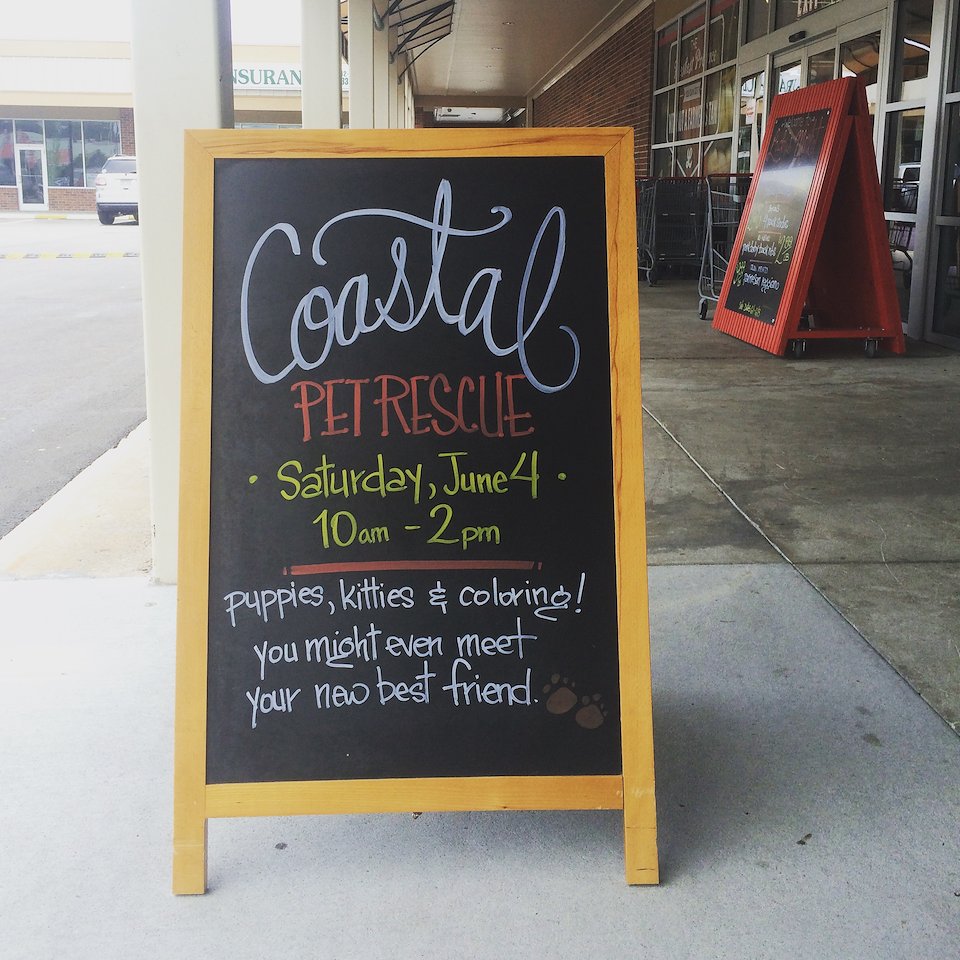 Coastal
PET RESCUE
· Saturday, June 4 ·
10am - 2pm
puppies, kitties & coloring!
you might even meet
your new best friend.
NSURAN